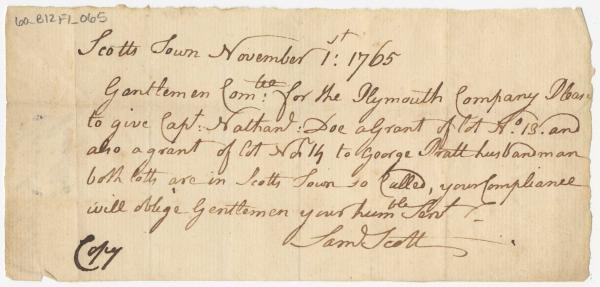 60_B12F1_065
Scotts Town November 1st: 1765
Gentlemen Comtee: for the Plymouth Company Please
to give Capt: Nathanl: Doe a Grant of Lot No. 13. and
also a grant of Lot No 14 to George Pratt husbandman
both Lotts are in Scotts Town so Called, your Compliance
will oblige Gentlemen your humble Servt
Saml Scott
Copy